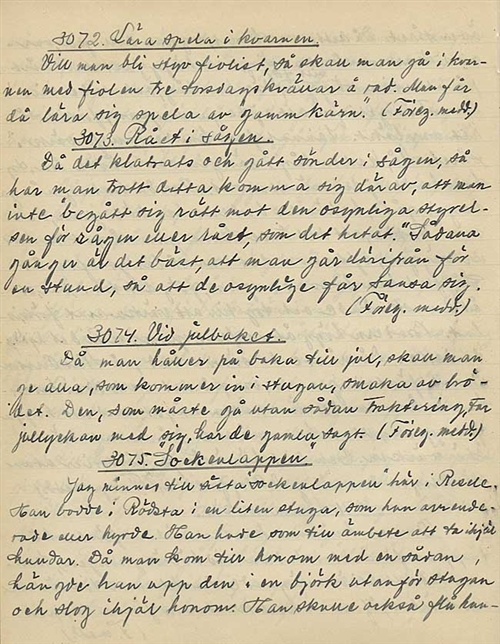 3072. Lära spela i kvarnen.
Vill man bli styv fiolist, så skall man gå i kvar-
nen med fiolen tre torsdagskvällar å rad. Man får
då lära sig spela av gammkärn." (Föreg. medd.)
3073. Rået i sågen.
Då det klatrats och gått sönder i sågen, så
har man trott detta komma sig därav, att man
inte "begått sig rätt mot den osynliga styrel-
sen för sågen eller rået, som det hetat. "Sådana
gånger är det bäst, att man går därifrån för
en stund, så att de osynlige får sansa sig.
(Föreg. medd.)
3074. Vid julbaket.
Då man håller på baka till jul, skall man
ge alla, som kommer in i stugan, smaka av brö-
det. Den, som måste gå utan sådan traktering, tar
jullyckan med sig, har de gamla sagt. (Föreg. medd.)
3075. "Sockenlappen"
Jag minnes till sista "sockenlappen" här i Resele.
Han bodde i Rödsta i en liten stuga, som han arrende-
rade eller hyrde. Han hade som till ämbete att ta ihjäl
hundar. Då man kom till honom med en sådan,
hängde han upp den i en björk utanför stugan
och slog ihjäl honom. Han skulle också flå hun-